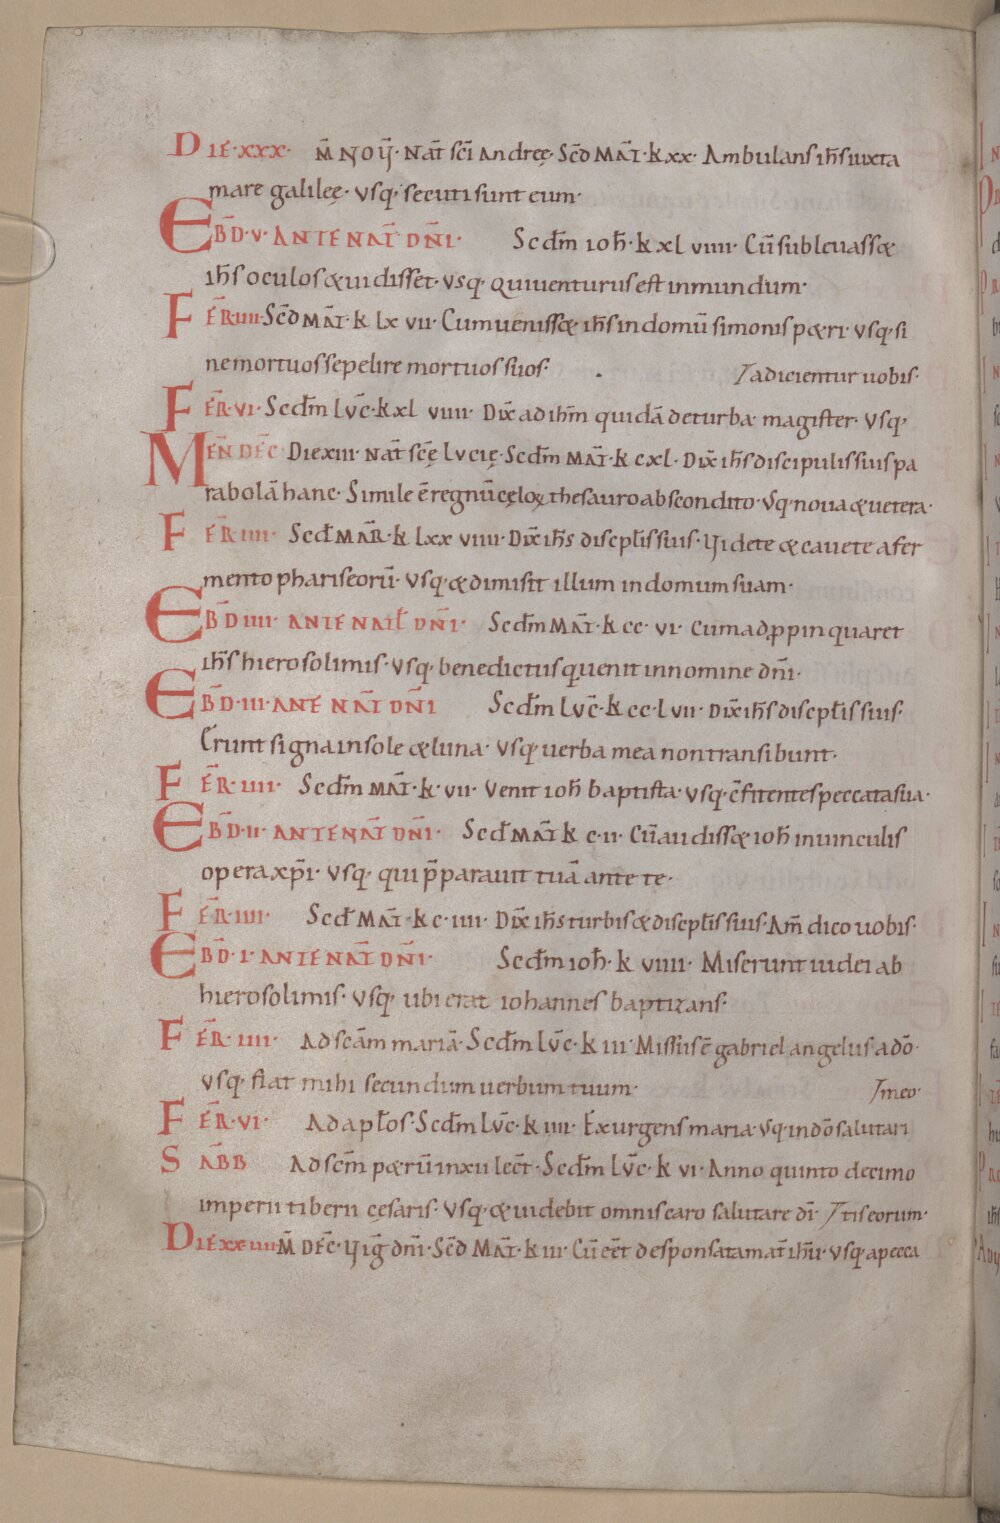 DIE·XXX· M̄ NOṼ· NAT̄ SC̄I Andreę· Sc̄D MAT̄· k xx· Ambulans ih̄s iuxta
mare galileę· vsq; secuti sunt eum·
EBD̄·V· ANTE NAT̄ DN̄I· Scdm̄ ioh̄· k xl viiii· Cū subleuasset
ih̄s oculos & uidisset· vsq; qui uenturus est in mundum·
FER̄·IIII· Sc̄D MAT̄· k lx vii· Cum uenisset ih̄s in domū simonis petri· vsq; si
ne mortuos sepelire mortuos suos· / adicientur uobis·
FER̄·VI· Scdm̄ Lvc̄· k xl viiii· Dix̄ ad ih̄m quidā de turba· magister· vsq;
MEN̄ DEC̄· Die xiii· NAT̄ sc̄ę Lvcię· Scdm̄ MAT̄· k cxl· Dix̄ ih̄s discipulis suis pa
rabolā hanc· Simile ē regnū cęloꝝ thesauro abscondito· vsq; noua & uetera·
FER̄·IIII· Scd̄ MAR̄· k lxx viiii· Dix̄ ih̄s discpl̄is suis· Videte & cauete a fer
mento phariseorū· vsq; & dimisit illum in domum suam·
EBD̄ IIII· ANTE NATL̄ DN̄I· Scdm̄ MAT̄· k cc· vi· Cum adp̱pinquaret
ih̄s hierosolimis· vsq; benedictus qui uenit in nomine dn̄i·
EBD̄·III· ANT̄E NAT̄ DN̄I Scdm̄ Lvc̄· k cc·l vii· Dix̄ ih̄s discpl̄is suis·
Erunt signa in sole & luna· vsq; uerba mea non transibunt·
FER̄·IIII· Scdm̄ MAT̄· k· vii· Venit ioh̄ baptista· vsq; c̄fitentes peccata sua·
EBD̄·II· ANTE NAT̄ DN̄I· Scd̄ MAT̄ k c·ii· Cū audisset ioh̄ in uinculis
opera xp̄i· vsq; qui p̄parauit tuā ante te·
FER̄·IIII· Scd̄ MAT̄· k c·iiii· Dix̄ ih̄s turbis & discpl̄is suis· Am̄ dico uobis·
EBD̄·I· ANTE NAT̄ DN̄I· Scdm̄ ioh̄· k viiii· Miserunt iudei ab
hierosolimis· vsq; ubi erat iohannes baptizans·
FER̄·IIII· Ad scām mariā· Scdm̄ Lvc̄· k iii· Missus ē gabriel angelus a dō·
vsq; fiat mihi secundum uerbum tuum· / meo·
FER̄·VI· Ad apl̄os· Scdm̄ Lvc̄· k iiii· Exurgens maria· vsq; in dō salutari
SABB Ad sc̄m petrū in xii lect̄· Scdm̄ Lvc̄· k vi· Anno quinto decimo
imperii tiberii cęsaris· vsq; & uidebit omnis caro salutare dī· / tis eorum·
DIE XX IIII M̄ DEC̄· Vig̅ dn̄i· Sc̄D MAT̄· k iii· Cū eēt desponsata mat̄ ih̄u· vsq; a pecca